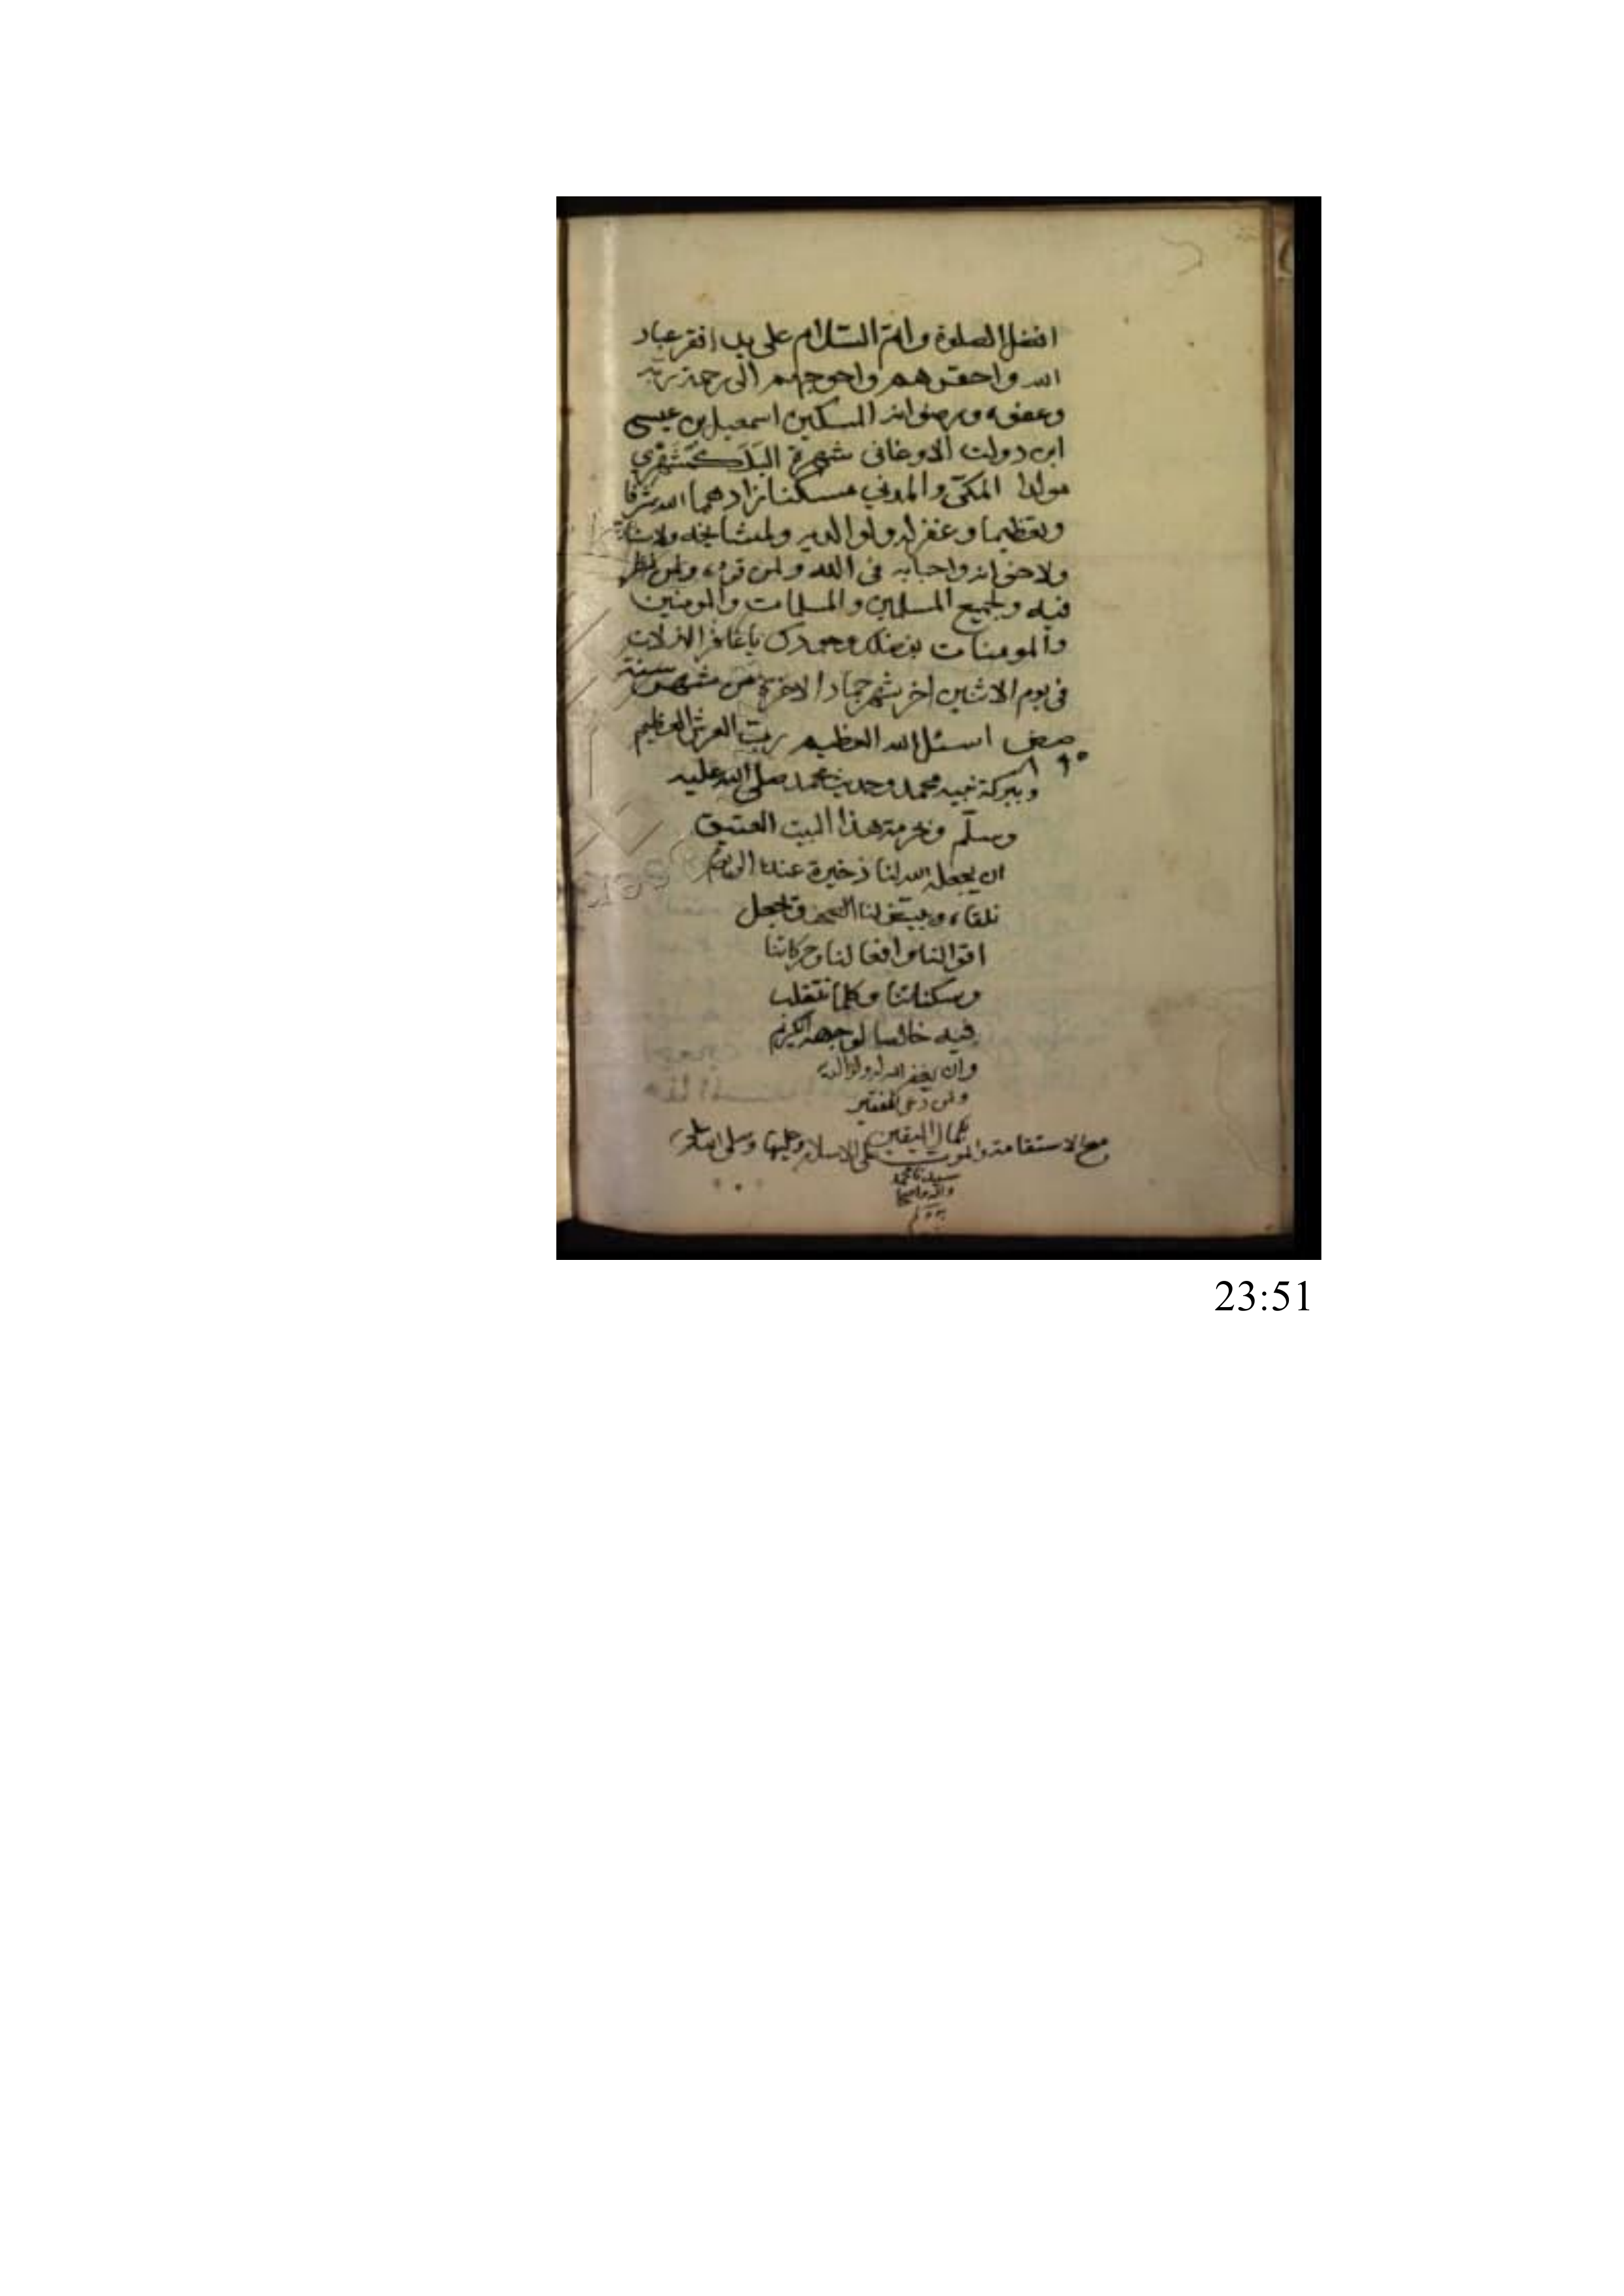 افضل الصلوة واتم السلام على يد افقر عباد
الله واحقرهم واحوجهم الى رحمة ربه
وعفوه ورضوانه المسكين اسمعيل بن عيسى
ابن دولت الاوغانى شهرة
مولدا المكّي والمدني مسكنا زادهما الله شرفا
وتعظيما وغفر له ولوالديه ولمشايخه
ولاخوانه واحبابه فى الله ولمن قرء ولمن نظر
فيه ولجميع المسلمين والمسلمات والمومنين
والمومنات بفضلك وجودك يا غافر الزلات
فى يوم الاثنين اخر شهر جماد الاخرة من شهور سنة
اسئل الله العظيم ربّ العرش العظيم
وببركة نبيه محمد وحديث محمد صلى الله عليه
وسلّم وبحرمة هذا البيت العتيق
ان يجعله الله لنا ذخيرة عنده الى يوم
نلقاه ويجعل
اقوالنا وافعالنا وحركاتنا
وسكناتنا وكلما نتقلب
فيه خالصا لوجهه الكريم
وان يغفر الله له ولوالديه
ولمن دعى للفقير
بكمال اليقين
مع الاستقامة والموت على الاسلام وصلى الله على
سيدنا محمد
واله واصحابه
وسلم
23:51